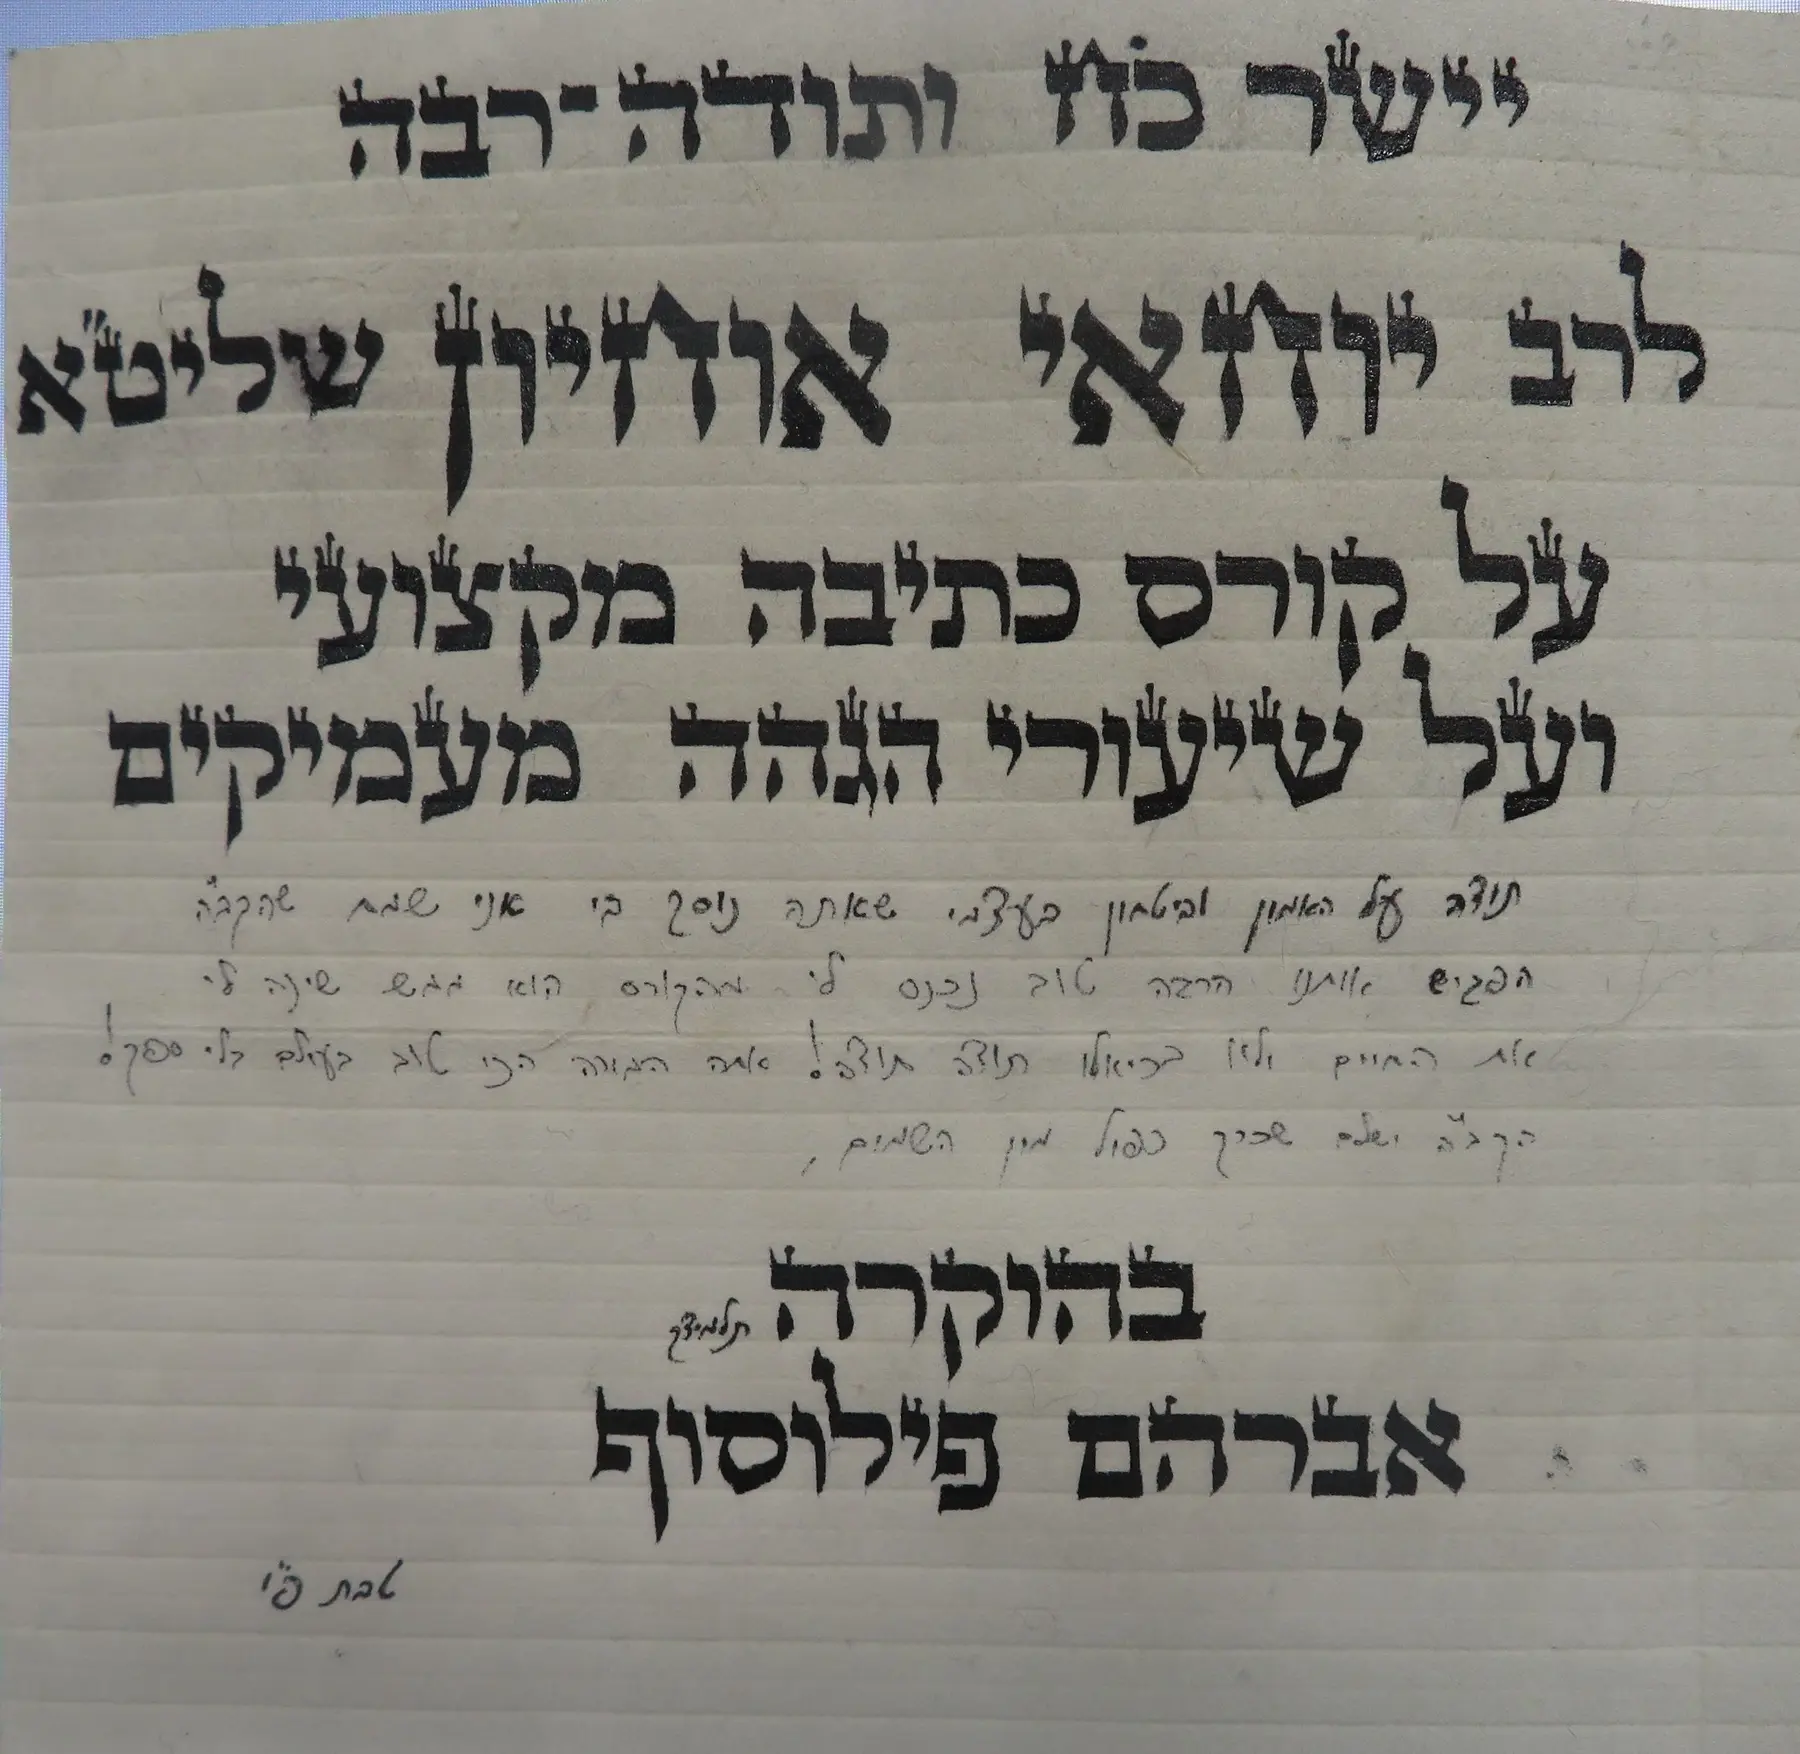 יישר כח ותודה-רבה
לרב יוחאי אוחיון שליט"א
על קורס כתיבה מקצועי
ועל שיעורי הגהה מעמיקים
תודה על האמון וביטחון בעצמי שאתה נוסך בי אני שמח שהקב"ה
הפגיש אותנו הרבה טוב נכנס לי מהקורס הוא ממש שינה לי
את החיים ולא בכיאלו תודה תודה! אתה המורה הכי טוב בעולם בלי ספק!
הקב"ה ישלם שכרך כפול מן השמים,
בהוקרה תלמידך
אברהם פילוסוף
טבת פ"ו